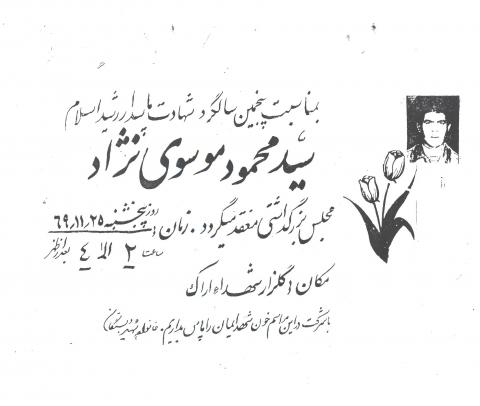 بمناسبت پنجمین سالگرد شهادت پاسدار رشید اسلام
سید محمود موسوی نژاد
مجلس بزرگداشتی منعقد میگردد. زمان: روز پنجشنبه ۶۹،۱۱،۲۵
ساعت ۲ الی ۴ بعد از ظهر
مکان: گلزار شهداء اراک
با شرکت در این مراسم خون شهدایمان را پاس بداریم. خانواده شهید و بستگان